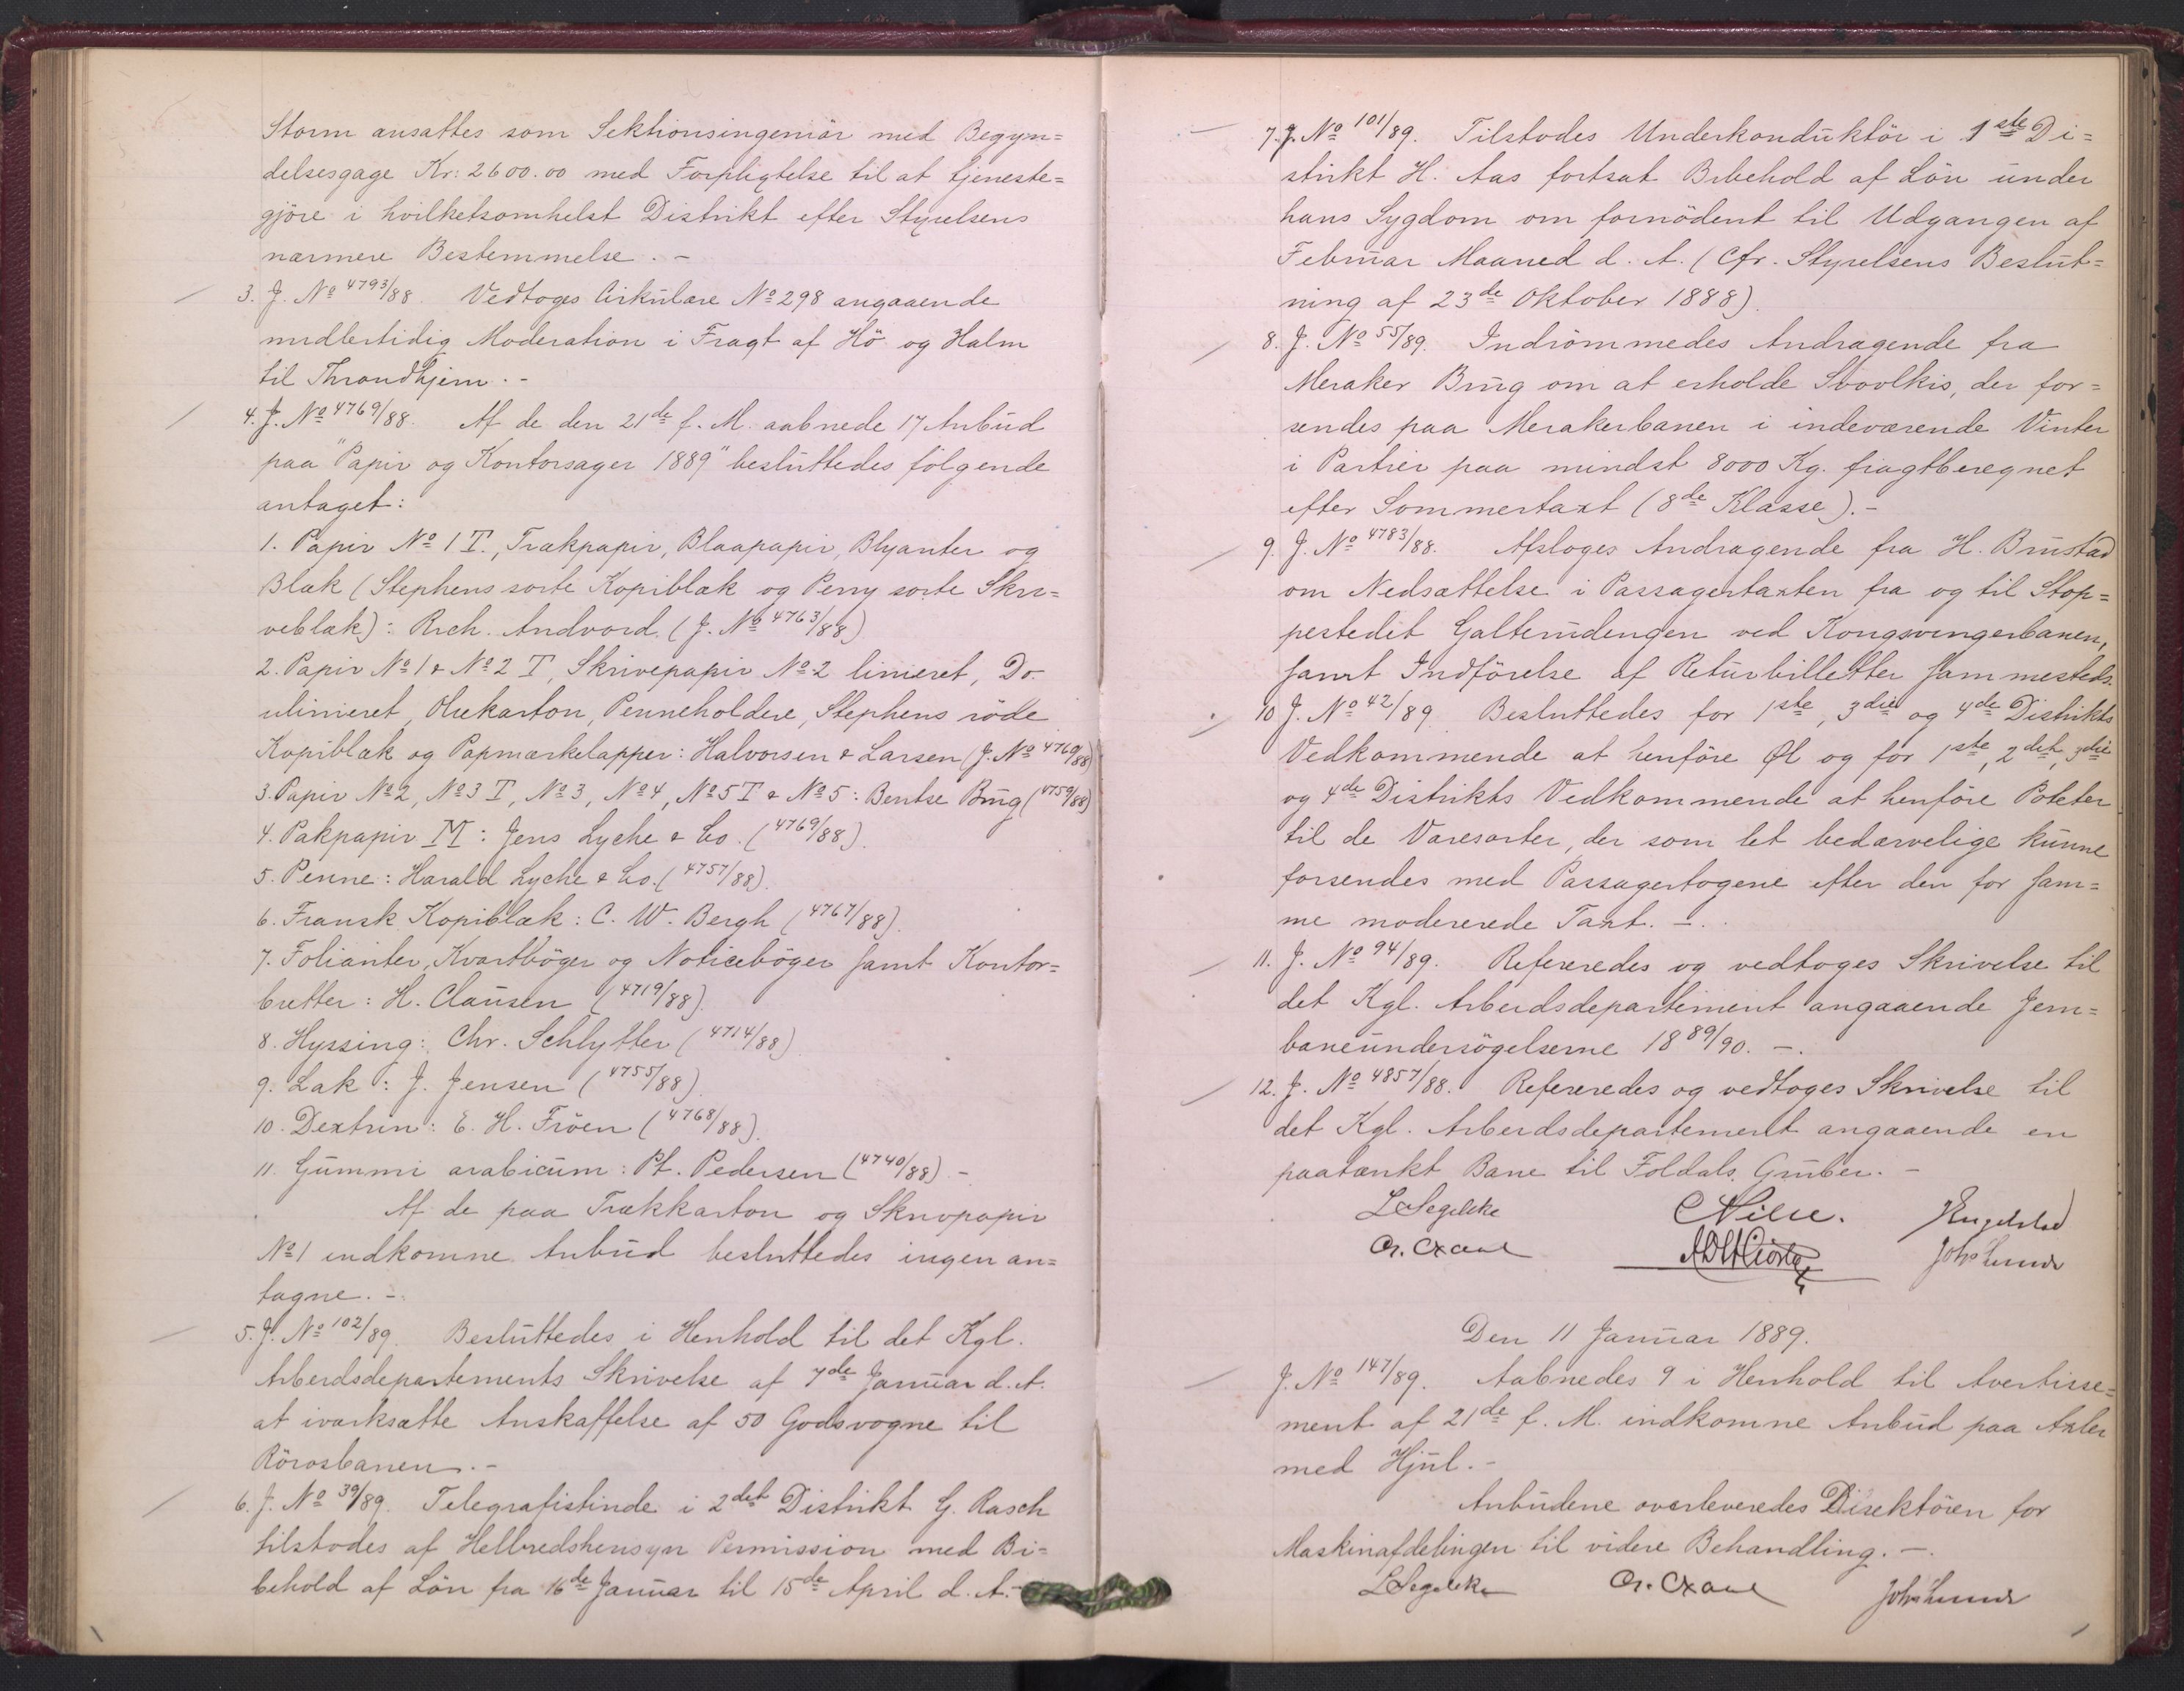 Storm ansattes som Sektionsingeniör med Begyn=
delsesgage Kr: 2600.00 med Forpligtelse til at tjeneste=
gjöre i hvilketsomhelst Distrikt efter Styrelsens
nærmere Bestemmelse. -
3. J. No 4793/88. Vedtoges Cirkulære No 298 angaaende
midlertidig Moderation i Fragt af Hö og Halm
til Throndhjem. -
4. J. No 4769/88. Af de den 21de f. M. aabnede 17 Anbud
paa "Papir og Kontorsager 1889" besluttedes fölgende
antaget:
1. Papir No 1 T., Trækpapir, Blaapapir, Blyanter og
Blæk (Stephens sorte Kopiblæk og Perry sorte Skri=
veblæk): Rich. Andvord. (J. No 4763/88)
2. Papir No 1 & No 2 T, Skrivepapir No 2 linieret, Do
ulinieret, Oliekarton, Penneholdere, Stephens röde
Kopiblæk og Papmærkelapper: Halvorsen & Larsen (J. No 4760/88)
3. Papir No 2, No 3 T, No 3, No 4, No 5 T & No 5: Bentse Brug (4759/88)
4. Pakpapir M: Jens Lyche & Co. (4769/88).
5. Penne: Harald Lyche & Co. (4757/88).
6. Fransk Kopiblæk: C. W. Bergh (4767/88).
7. Folianter, Kvartböger og Noticeböger samt Kontor=
bretter: H. Clausen (4719/88).
8. Hyssing: Chr. Schlytter (4714/88)
9. Lak: J. Jensen (4755/88).
10. Dextrin: E. H. Fröen (4768/88).
11. Gummi arabicum: Pt. Pedersen (4740/88) -
Af de paa Trækkarton og Skrivpapir
No 1 indkomne Anbud besluttedes ingen an=
tagne. -
5. J. No 102/89. Besluttedes i Henhold til det Kgl.
Arbeidsdepartements Skrivelse af 7de Januar d. A.
at iværksætte Anskaffelse af 50 Godsvogne til
Rörosbanen. -
6. J. No 39/89. Telegrafistinde i 2det Distrikt G. Rasch
tilstodes af Helbredshensyn Permission med Bi=
behold af Lön fra 16de Januar til 15de April d. A. -
7. J. No 101/89. Tilstodes Underkonduktör i 1ste Di=
strikt H. Aas fortsat Bibehold af Lön under
hans Sygdom om fornödent til Udgangen af
Februar Maaned d. A. (Cfr. Styrelsens Beslut=
ning af 23de Oktober 1888).
8. J. No 55/89. Indrömmedes Andragende fra
Meraker Brug om at erholde Svovlkis, der for=
sendes paa Merakerbanen i indeværende Vinter
i Partier paa mindst 8000 Kg. fragtberegnet
efter Sommertaxt (8de Klasse). -
9. J. No 4783/88. Afsloges Andragende fra H. Brustad
om Nedsættelse i Passagertaxten fra og til Stop=
pestedet Galterudengen ved Kongsvingerbanen,
samt Indförelse af Returbilletter sammesteds.
10 J. No 42/89. Besluttedes for 1ste, 3die og 4de Distrikts
Vedkommende at henföre Øl og for 1ste, 2det, 3die
og 4de Distrikts Vedkommende at henföre Poteter
til de Varesorter, der som let bedærvelige kunne
forsendes med Passagertogene efter den for sam=
me modererede Taxt. -.
11. J. No 94/89. Refereredes og vedtoges Skrivelse til
det Kgl. Arbeidsdepartement angaaende Jern=
baneundersögelserne 1889/90. -.
12. J. No 4857/88. Refereredes og vedtoges Skrivelse til
det Kgl. Arbeidsdepartement angaaende en
paatænkt Bane til Foldals Gruber. -
LSegelcke CNilse. JEngelstad
Johs Lunde
Den 11 Januar 1889.
J. No 147/89. Aabnedes 9 i Henhold til Avertisse=
ment af 21de f. M. indkomne Anbud paa Axler
med Hjul. -
Anbudene overleveredes Direktören for
Maskinafdelingen til videre Behandling. -.
LSegelcke Johs Lunde